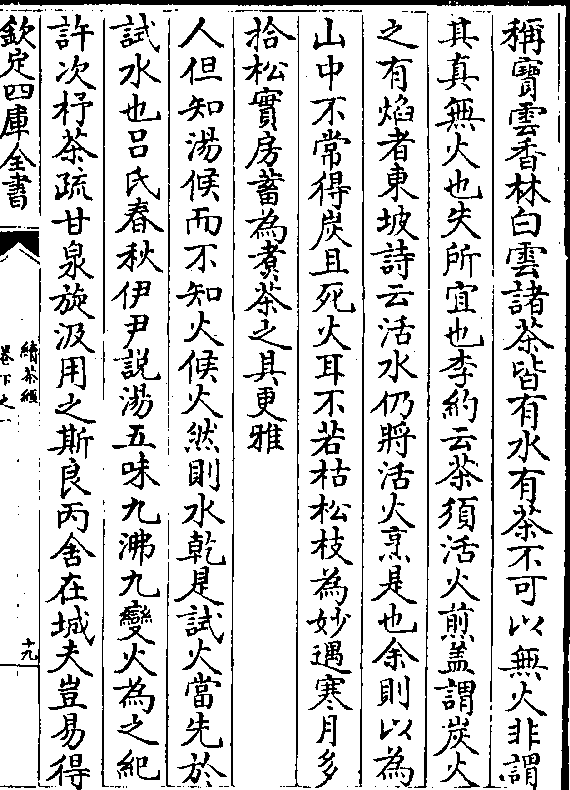 稱寶雲香林白雲諸茶皆有水有茶不可以無火非謂
其真無火也失所宜也李約云茶須活火煎盖謂炭火
之有焰者東坡詩云活水仍將活火烹是也余則以為
山中不常得炭且死火耳不若枯松枝為妙遇寒月多
拾松實房蓄為煮茶之具更雅
人但知湯候而不知火候火然則水乾是試火當先於
試水也吕氏春秋伊尹說湯五味九沸九變火為之紀
許次杼茶疏甘泉旋汲用之斯良丙舍在城夫豈易得
欽定四庫全書
續茶經
卷下之一
十九